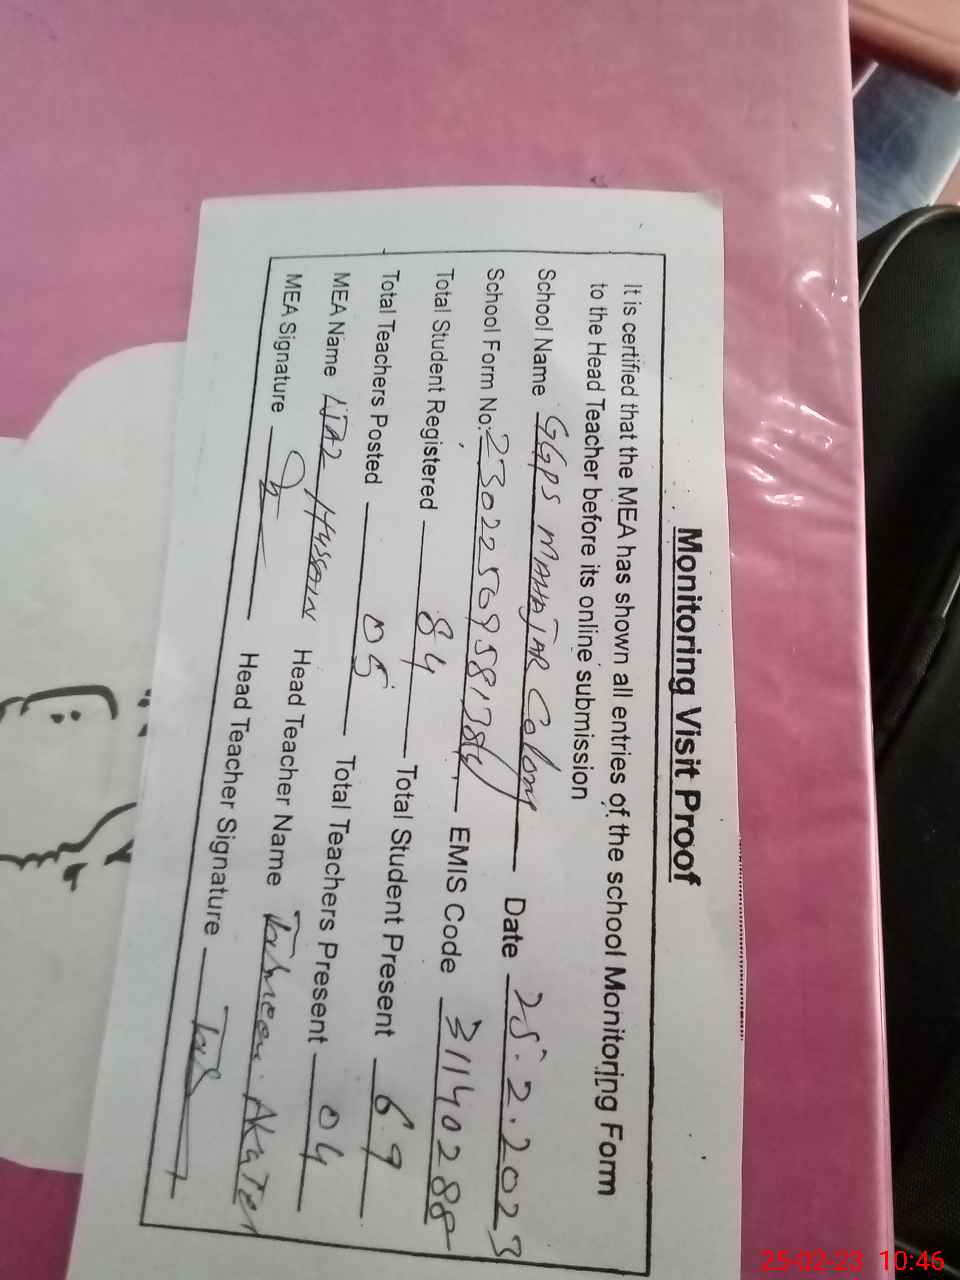 Monitoring Visit Proof
It is certified that the MEA has shown all entries of the school Monitoring Form
to the Head Teacher before its online submission
School Name GGPS MAHAJAR Colony Date 25.2.2023
School Form No: EMIS Code 31140288
Total Student Registered 84 Total Student Present 69
Total Teachers Posted 05 Total Teachers Present 04
MEA Name Head Teacher Name
MEA Signature Head Teacher Signature
25-02-23 10:46